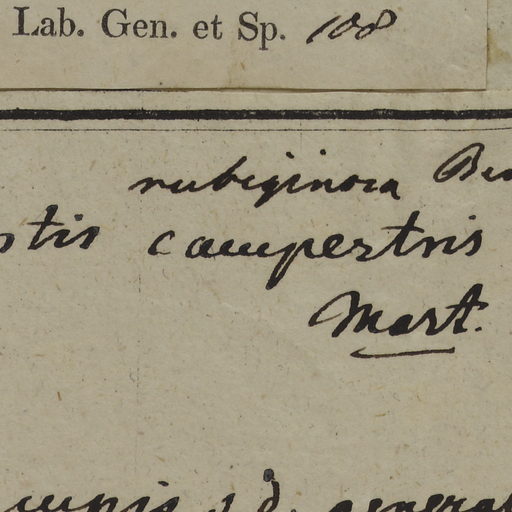 Lab. Gen. et Sp. 108
rubiginosa Ben
stis campestris
Mart.